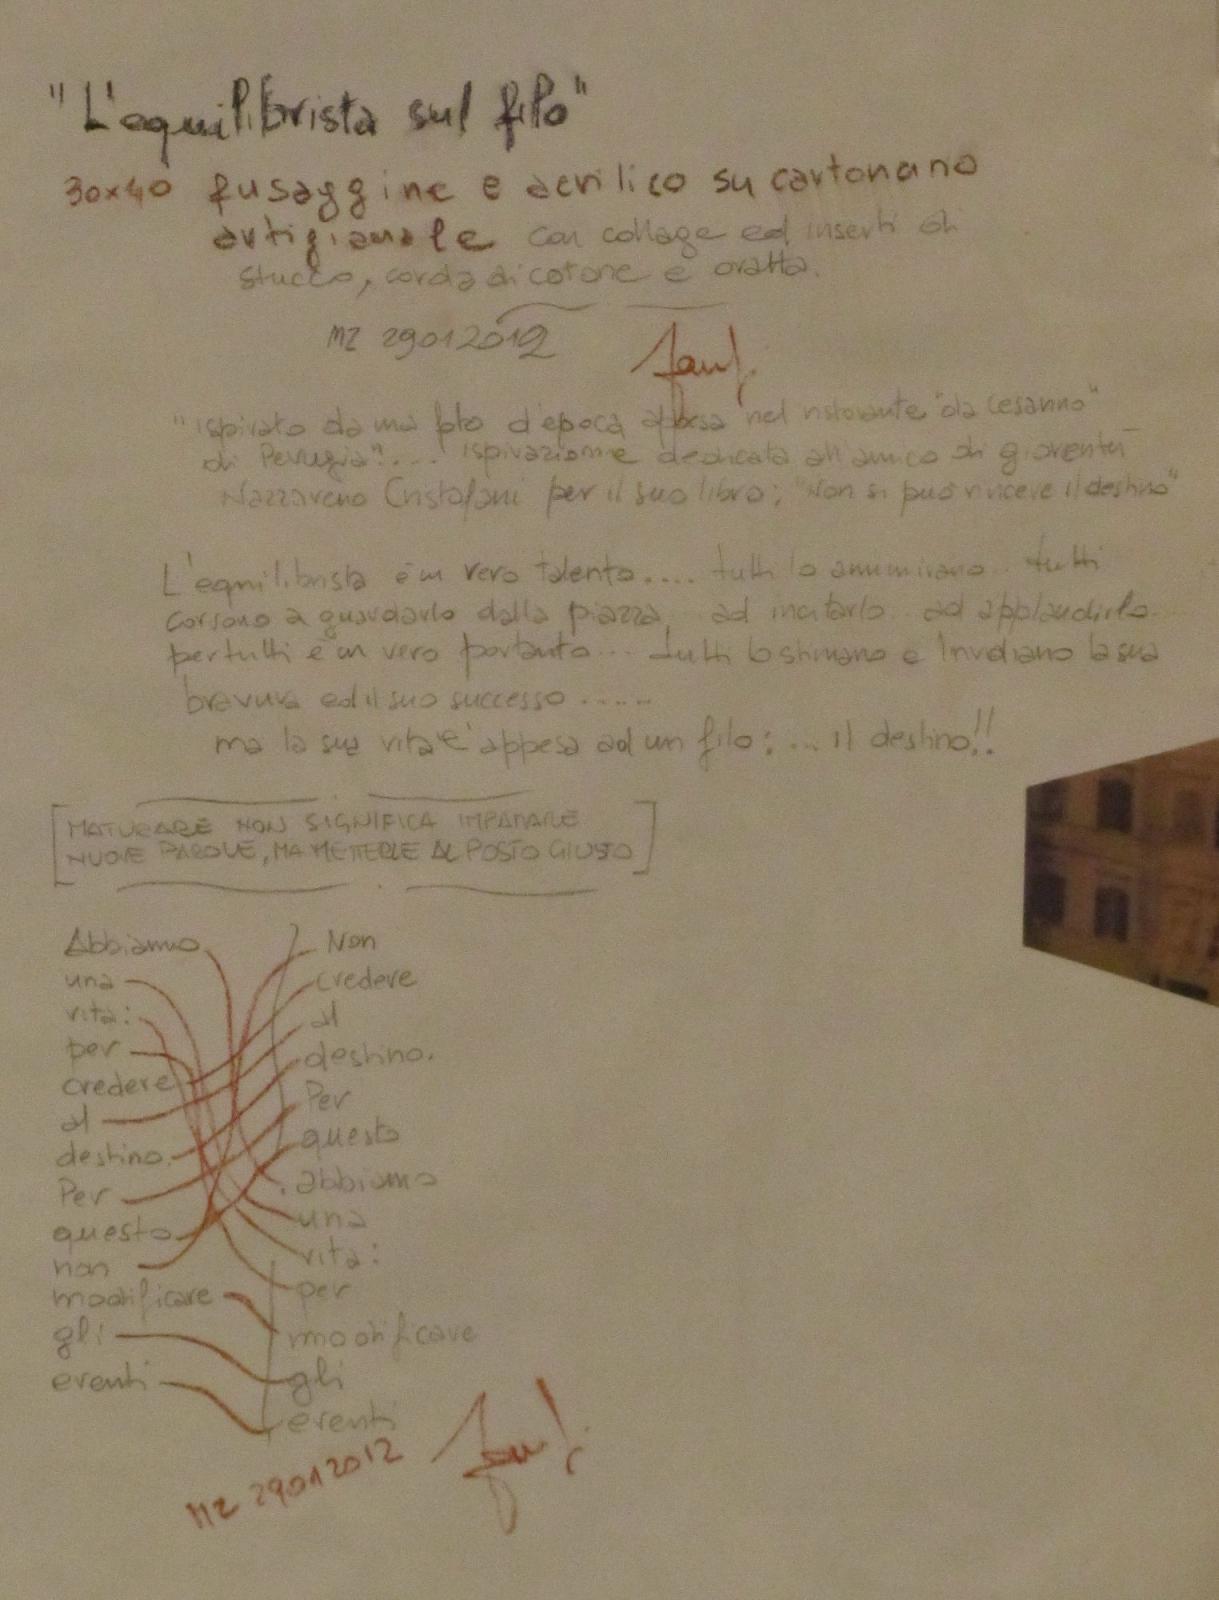 "L'equilibrista sul filo"
30x40 fusaggine e acrilico su cartonano
artigianale con collage ed inserti di
stucco, corda di cotone e ovatta.
MZ 29012012
"Ispirato da una foto d'epoca appesa nel ristorante "da Cesarino"
di Perugia".... Ispirazione dedicata all'amico di gioventù
Nazzareno Cristofani per il suo libro: "Non si può vincere il destino"
L'equilibrista è un vero talento.... tutti lo ammirano... tutti
corrono a guardarlo dalla piazza, ad incitarlo ad applaudirlo.
per tutti è un vero portento... tutti lo stimano e invidiano la sua
bravura ed il suo successo ......
ma la sua vita è appesa ad un filo: ... il destino!!
[MATURARE NON SIGNIFICA IMPARARE
NUOVE PAROLE, MA METTERLE AL POSTO GIUSTO]
Abbiamo
una
vita:
per
credere
al
destino.
Per
questo
non
modificare
gli
eventi
Non
credere
al
destino.
Per
questo
abbiamo
una
vita:
per
modificare
gli
eventi
MZ 29012012